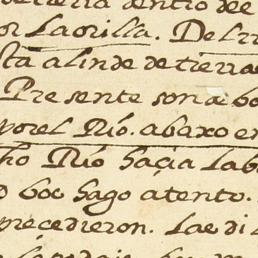 de tierra dentro de e
or La orilla. De Lri
sta a linde de tierra
Presente son a bo
por el Rio. abaxo en
ho Rio haçia Lab
o boc hago atento.
precedieron. Lae di L